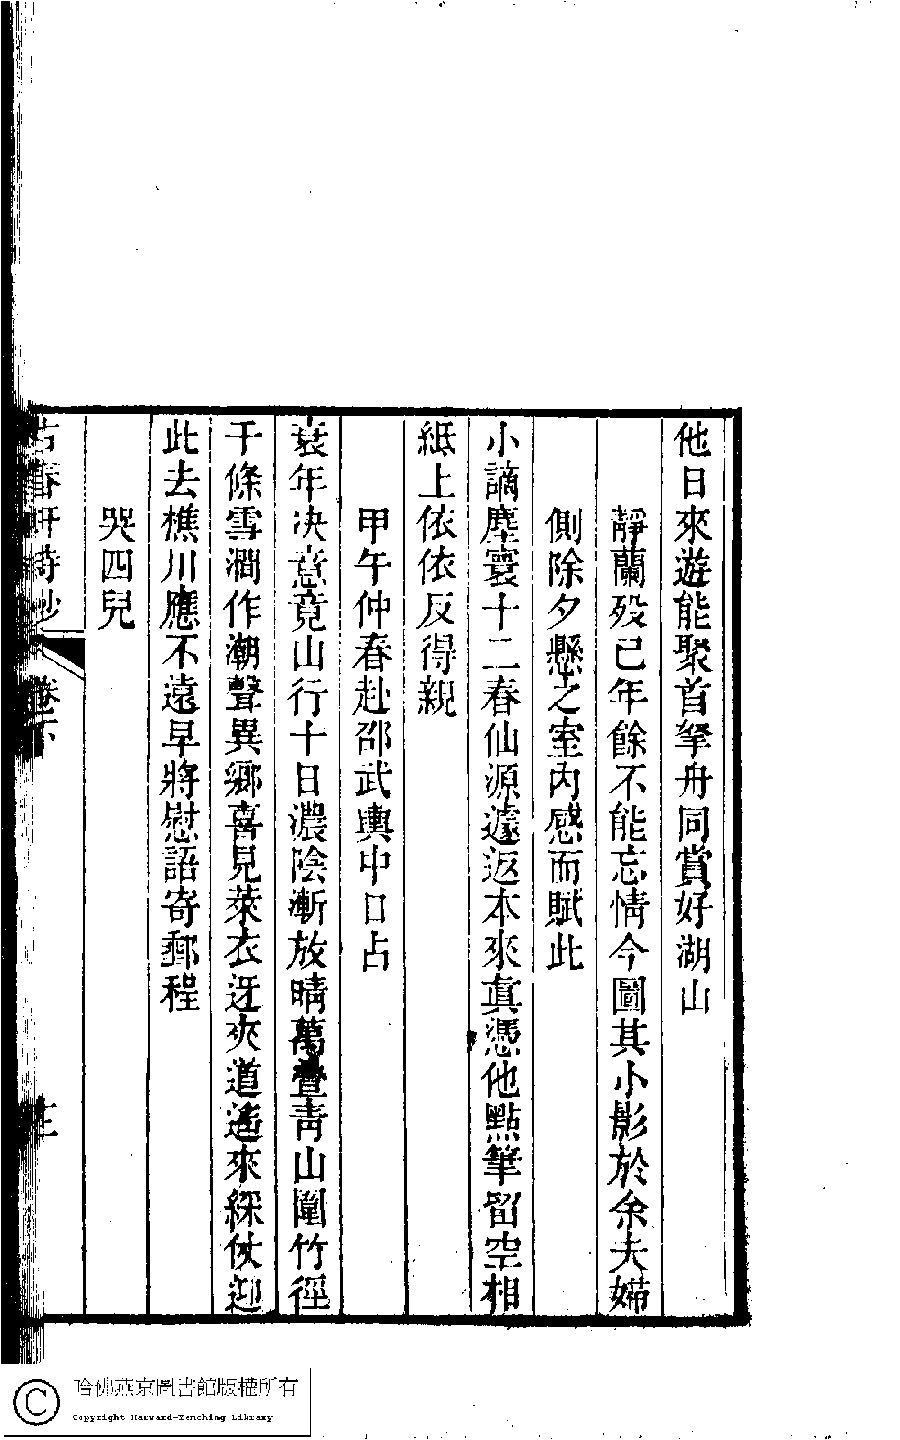 他日來遊能聚首拏舟同賞好湖山
靜蘭歿已年餘不能忘情今圖其小影於余夫婦
側除夕懸之室內感而賦此
小謫塵寰十二春仙源遽返本來真憑他點筆留空相
紙上依依反得親
甲午仲春赴邵武輿中口占
衰年决意竟山行十日濃陰漸放晴萬疊青山圍竹徑
千條雪澗作潮聲異鄉喜見萊衣迓夾道遙來綵仗迎
此去樵川應不遠早將慰語寄郵程
哭四兒
古春軒詩鈔 卷下
哈佛燕京圖書館版權所有
Copyright Harvard-Yenching Library